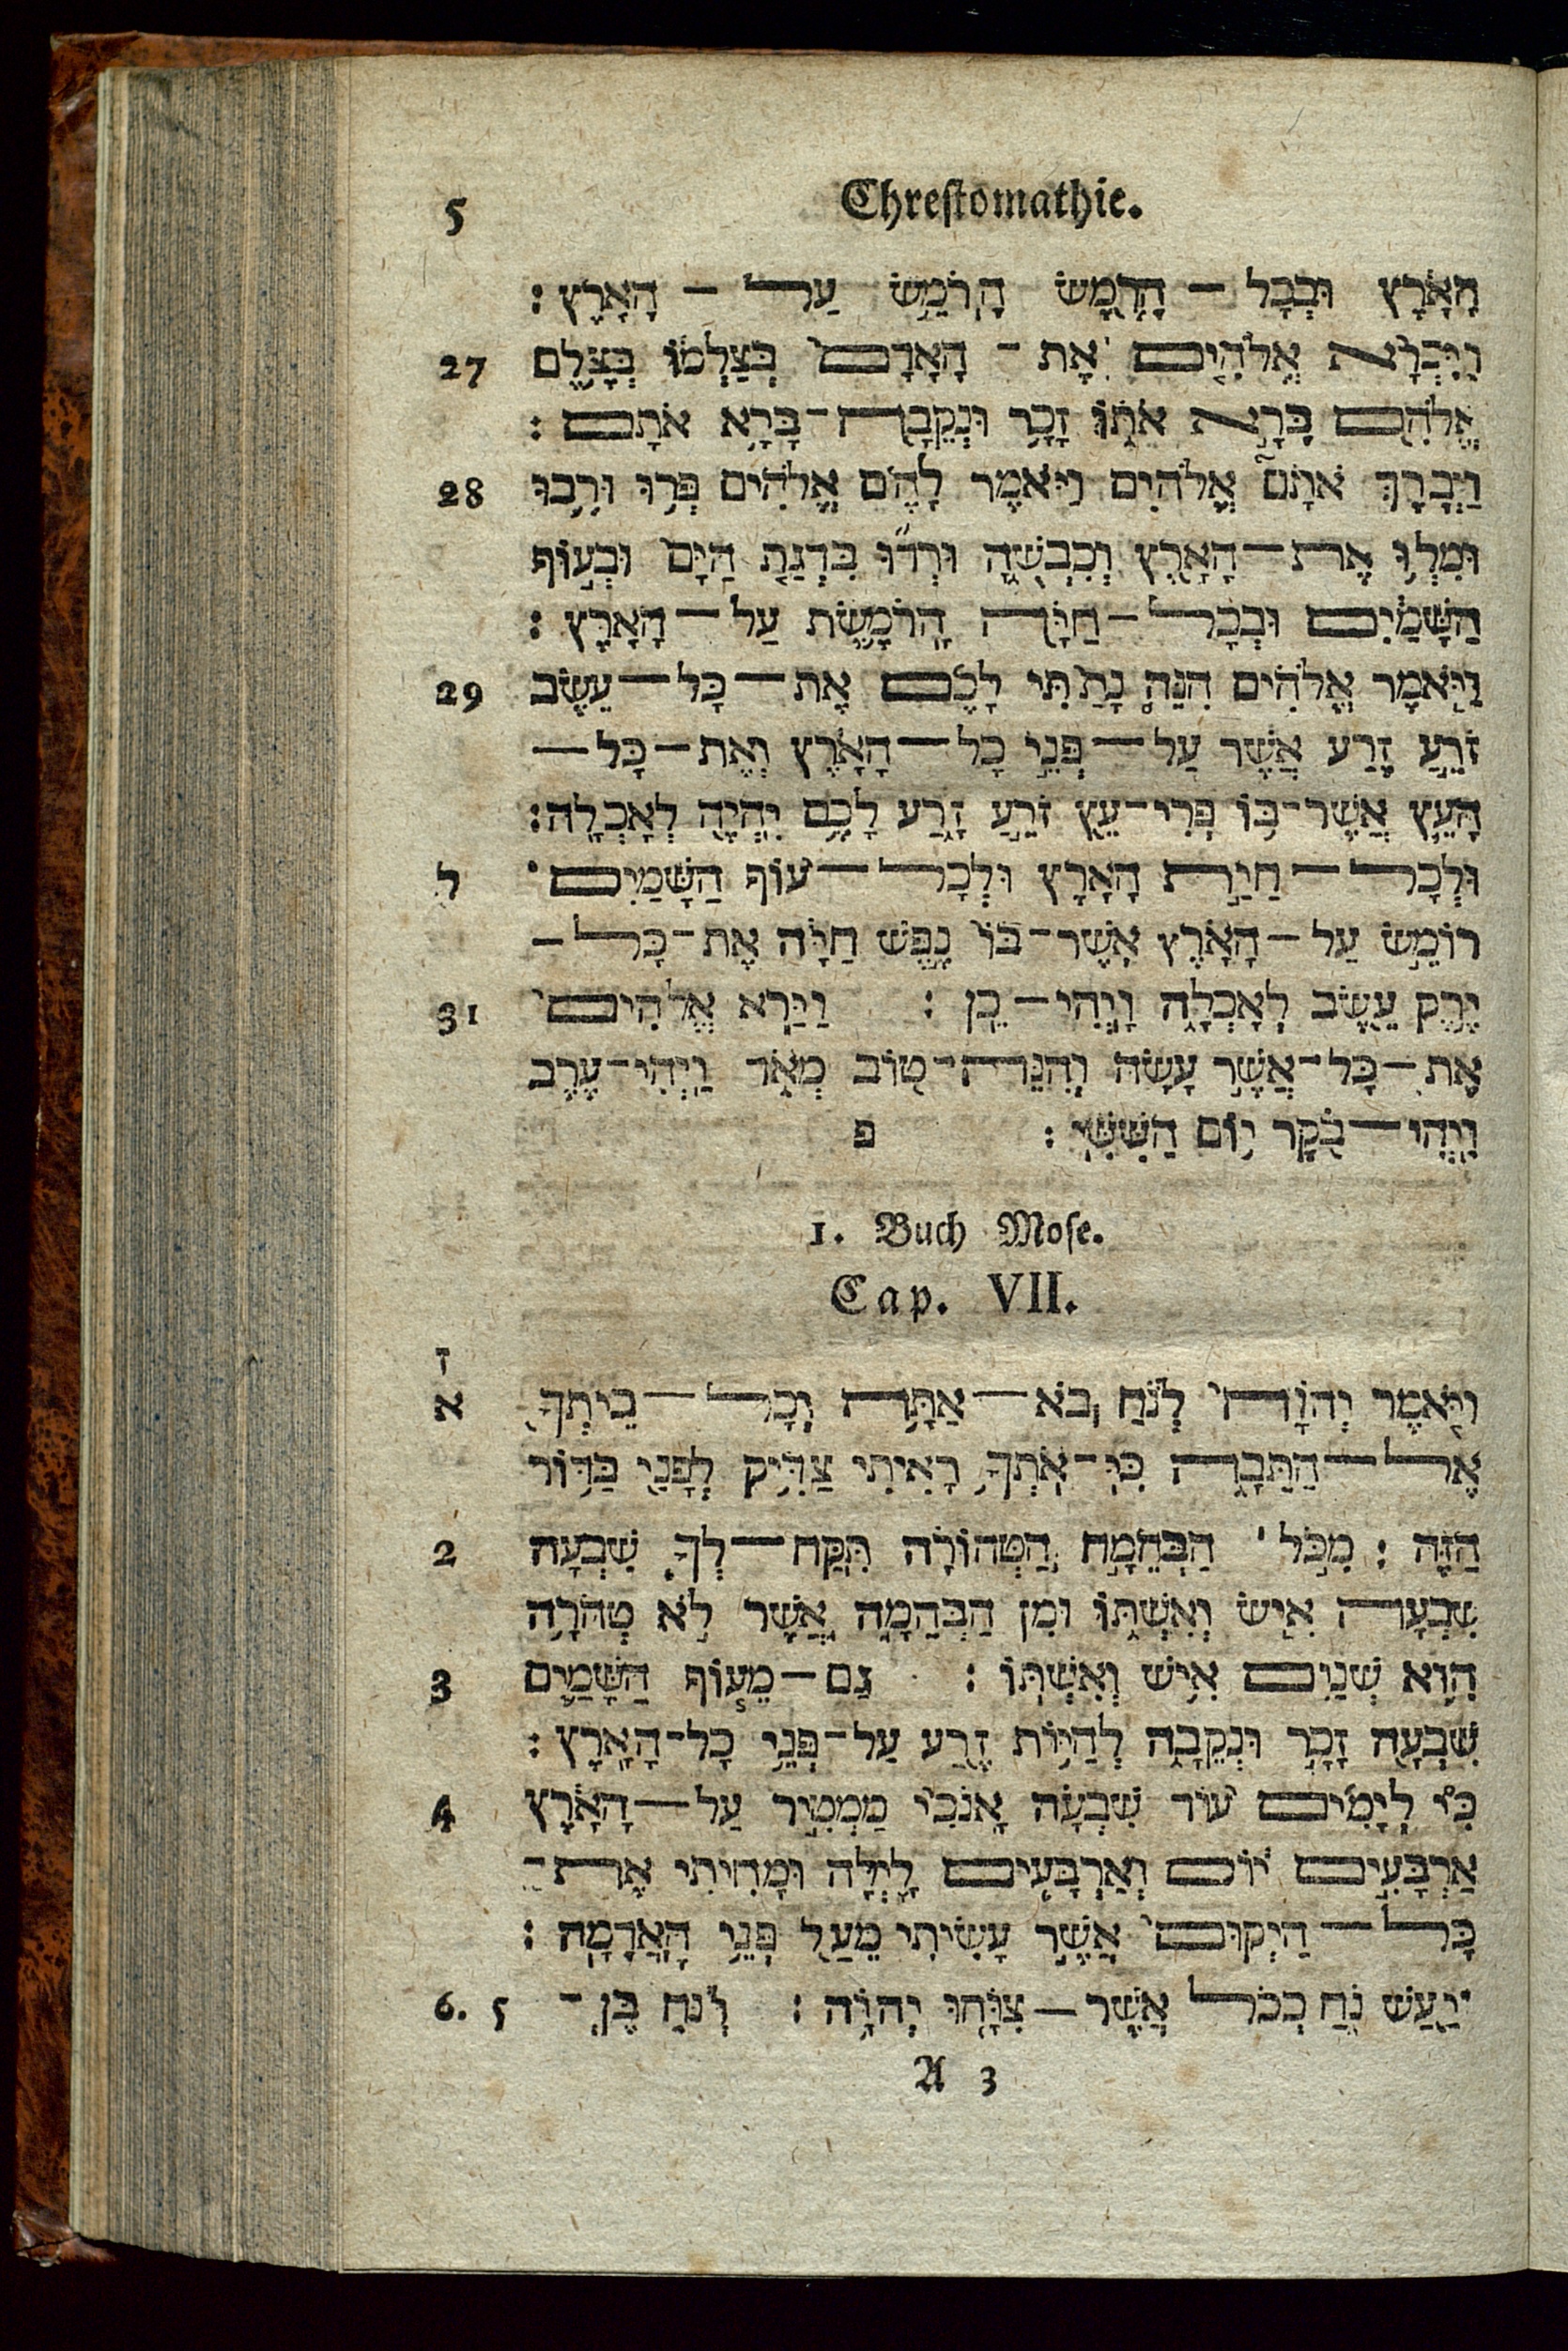 5 Chrestomathie.
הָאָרֶץ וּבְכָל־הָרֶמֶשׂ הָרֹמֵשׂ עַל־הָאָרֶץ:
27 וַיִּבְרָא אֱלֹהִים אֶת־הָאָדָם בְּצַלְמוֹ בְּצֶלֶם
אֱלֹהִים בָּרָא אֹתוֹ זָכָר וּנְקֵבָה־בָּרָא אֹתָם:
28 וַיְבָרֶךְ אֹתָם אֱלֹהִים וַיֹּאמֶר לָהֶם אֱלֹהִים פְּרוּ וּרְבוּ
וּמִלְוּ אֶת־הָאָרֶץ וְכִבְשֻׁהָ וּרְדוּ בִּדְגַת הַיָּם וּבְעוֹף
הַשָּׁמַיִם וּבְכָל־חַיָּה הָרֹמֶשֶׂת עַל־הָאָרֶץ:
29 וַיֹּאמֶר אֱלֹהִים הִנֵּה נָתַתִּי לָכֶם אֶת־כָּל־עֵשֶׂב
זֹרֵעַ זֶרַע אֲשֶׁר עַל־פְּנֵי כָל־הָאָרֶץ וְאֶת־כָּל־
הָעֵץ אֲשֶׁר־בּוֹ פְּרִי־עֵץ זֹרֵעַ זָרַע לָכֶם יִהְיֶה לְאָכְלָה:
ל וּלְכָל־חַיַּת הָאָרֶץ וּלְכָל־עוֹף הַשָּׁמַיִם
רוֹמֵשׂ עַל־הָאָרֶץ אֲשֶׁר־בּוֹ נֶפֶשׁ חַיָּה אֶת־כָּל־
31 יֶרֶק עֵשֶׂב לְאָכְלָה וַיְהִי־כֵן: וַיַּרְא אֱלֹהִים
אֶת־כָּל־אֲשֶׁר עָשָׂה וְהִנֵּה־טוֹב מְאֹד וַיְהִי־עֶרֶב
וַיְהִי־בֹקֶר יוֹם הַשִּׁשִּׁי: פ
1. Buch Mose.
Cap. VII.
ז
א וַיֹּאמֶר יְהוָה לְנֹחַ בֹּא־אַתָּה וְכָל־בֵּיתְךָ
אֶל־הַתֵּבָה כִּי־אֹתְךָ רָאִיתִי צַדִּיק לְפָנַי בַּדּוֹר
2 הַזֶּה: מִכֹּל הַבְּהֵמָה הַטְּהוֹרָה תִּקַּח־לְךָ שִׁבְעָה
שִׁבְעָה אִישׁ וְאִשְׁתּוֹ וּמִן הַבְּהֵמָה אֲשֶׁר לֹא טְהֹרָה
3 הִוא שְׁנַיִם אִישׁ וְאִשְׁתּוֹ: גַּם־מֵעוֹף הַשָּׁמַיִם
שִׁבְעָה זָכָר וּנְקֵבָה לְחַיּוֹת זֶרַע עַל־פְּנֵי כָל־הָאָרֶץ:
4 כִּי לְיָמִים עוֹד שִׁבְעָה אָנֹכִי מַמְטִיר עַל־הָאָרֶץ
אַרְבָּעִים יוֹם וְאַרְבָּעִים לָיְלָה וּמָחִיתִי אֶת־
כָּל־הַיְקוּם אֲשֶׁר עָשִׂיתִי מֵעַל פְּנֵי הָאֲדָמָה:
6. 5 יַעַשׂ נֹחַ כְּכֹל אֲשֶׁר־צִוָּהוּ יְהוָה: לְנֹחַ בֶּן־
A 3